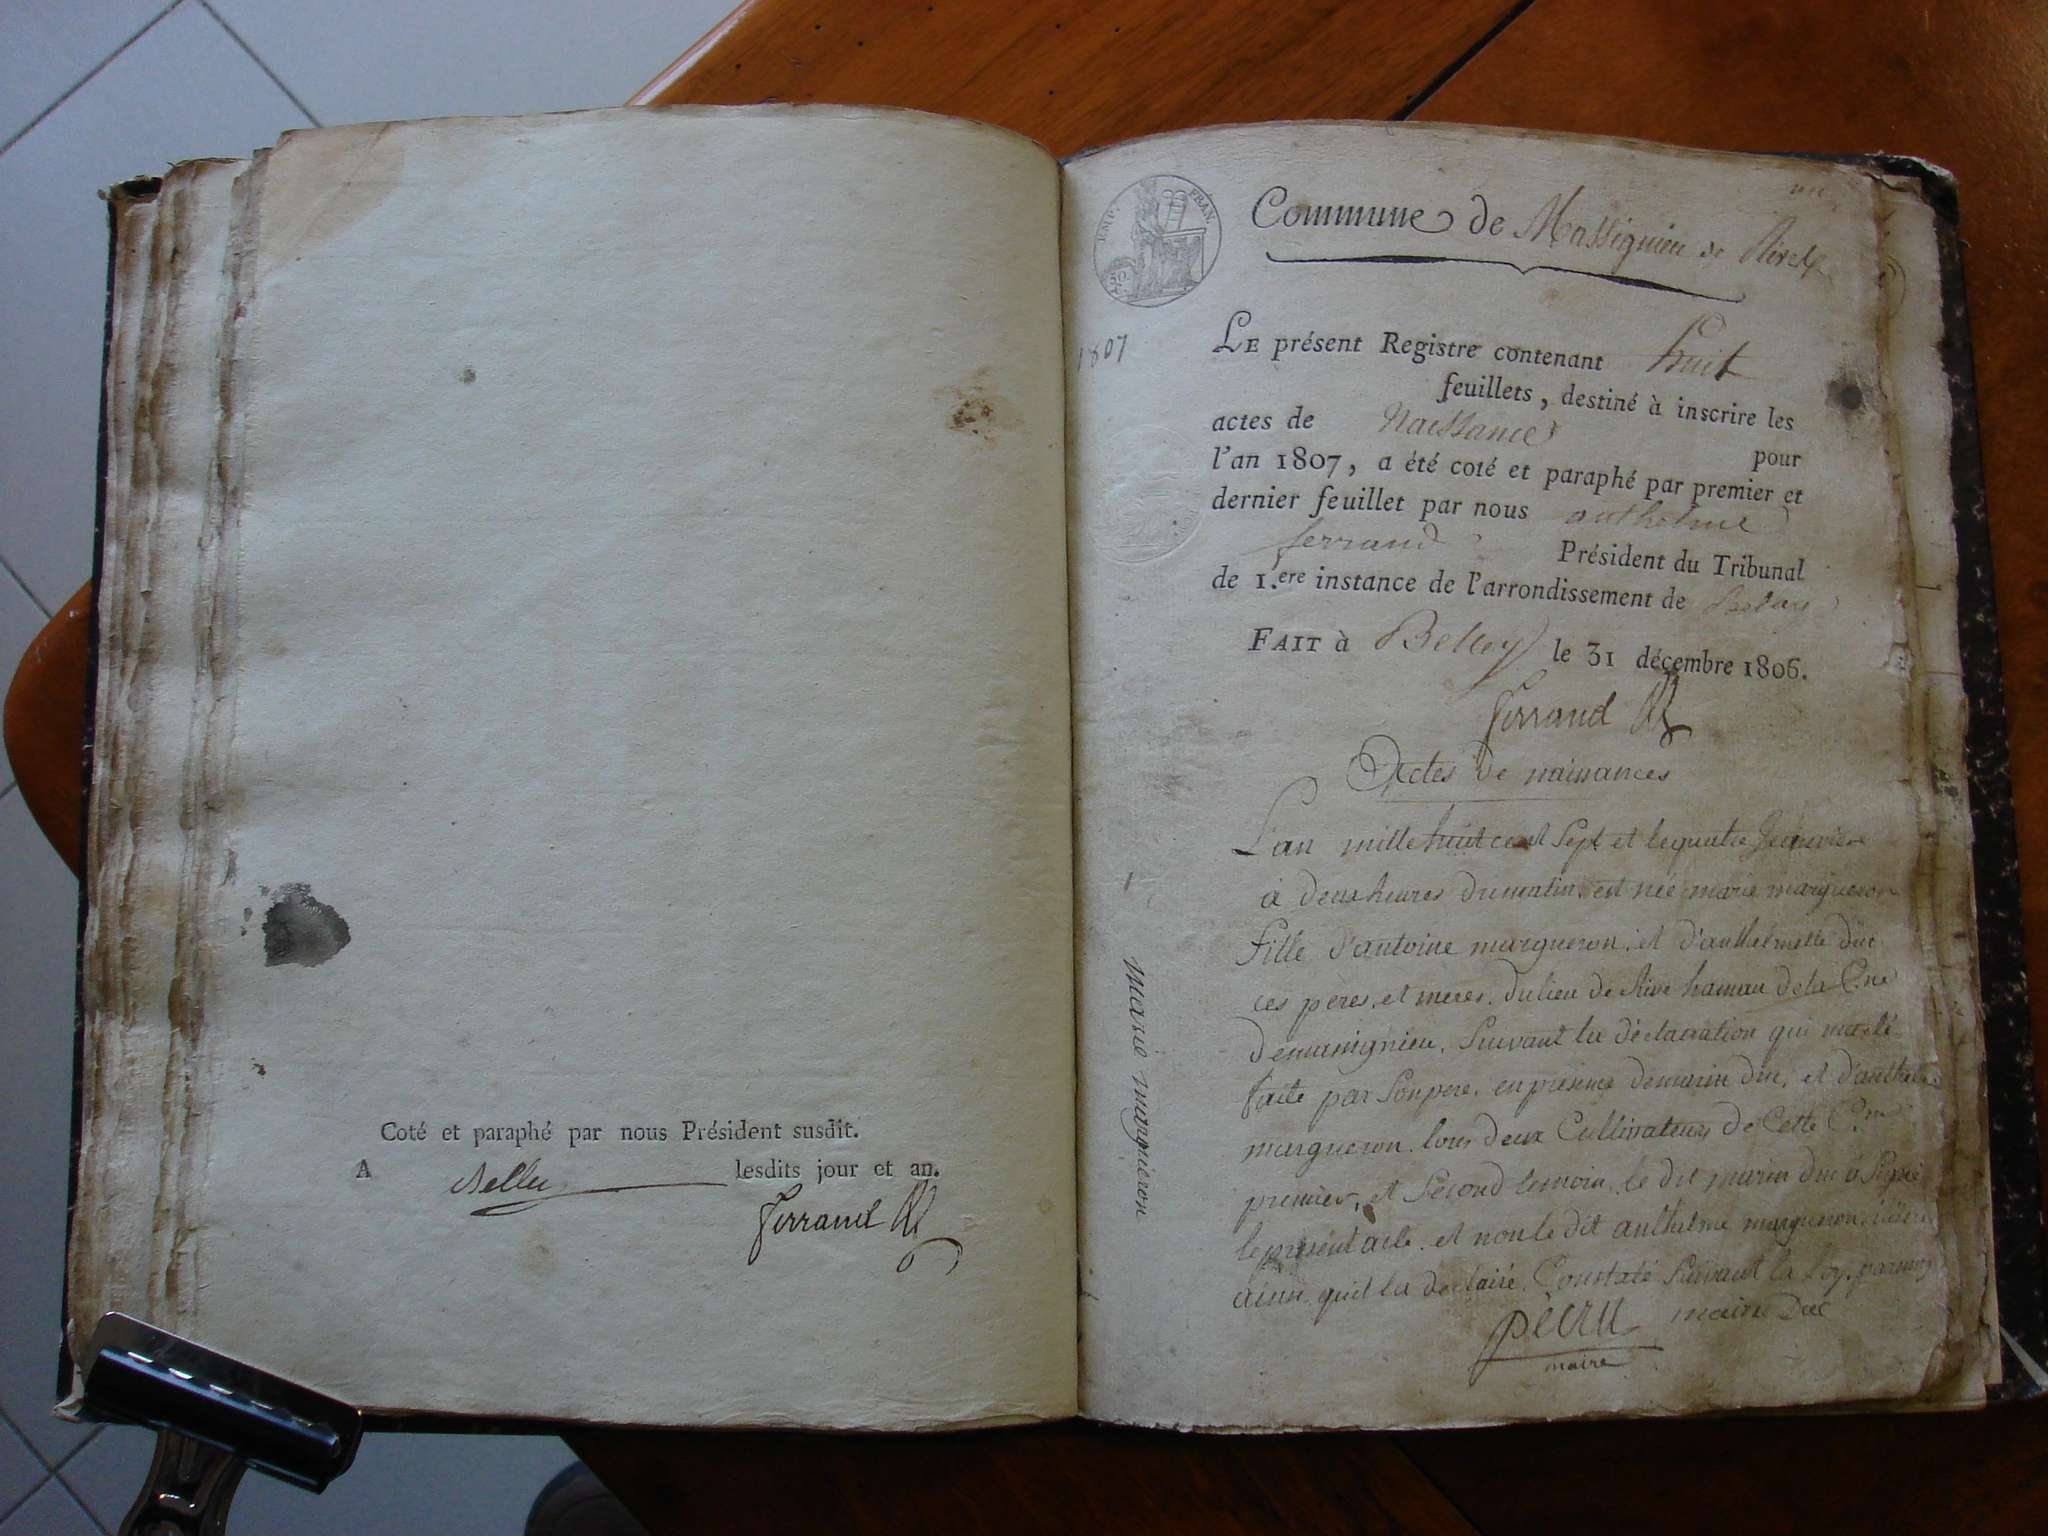 Coté et paraphé par nous Président susdit.
A Belley lesdits jour et an.
Ferrand
un
EMP. FRAN.
50
Commune de Massignieu de Rives
1807
LE présent Registre contenant huit
feuillets, destiné à inscrire les
actes de Naissances pour
l'an 1807, a été coté et paraphé par premier et
dernier feuillet par nous anthelme
ferrand Président du Tribunal
de 1.ere instance de l'arrondissement de Belley
FAIT à Belley le 31 décembre 1806.
Ferrand
Actes de naissances
1
marie margueron
L'an mille huit cent Sept et le quatre Janvier
à deux heures du matin, est née marie margueron
fille d'antoine margueron, et d'anthelmette duc
ces peres, et meres, du lieu de Rive hamau de la Cne
de massignieu, Suivant la déclaration qui m'a été
faite par Son pere, en presence de marin duc, et d'anthelme
margueron tous deux Cultivateurs de Cette Cne
premier, et Second temoin, le dit marin duc à Signé
le présent acte, et non le dit anthelme margueron
ainsi quil la declairé. Constaté Suivant la loy, par moy
maire Duc
maire